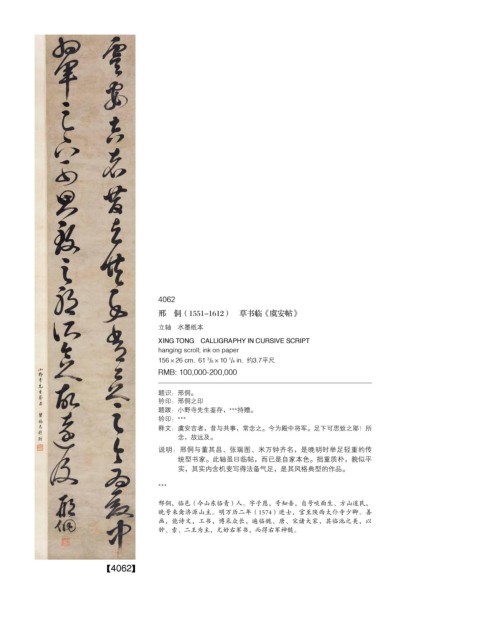 虞安吉者昔與共事常念之今為殿中
將軍足下可思致之耶所念故遠及 邢侗
小野寺先生鉴存
【4062】
4062
邢 侗(1551-1612) 草书临《虞安帖》
立轴 水墨纸本
XING TONG CALLIGRAPHY IN CURSIVE SCRIPT
hanging scroll; ink on paper
156×26 cm. 61 3/8×10 1/8 in. 约3.7平尺
RMB: 100,000-200,000
题识:邢侗。
钤印:邢侗之印
题跋:小野寺先生鉴存,***持赠。
钤印:***
释文:虞安吉者,昔与共事,常念之。今为殿中将军。足下可思致之耶!所
念,故远及。
说明:邢侗与董其昌、张瑞图、米万钟齐名,是晚明时举足轻重的传
统型书家。此轴虽曰临帖,而已是自家本色。拙重质朴,貌似平
实,其实内含机变写得法备气足,是其风格典型的作品。
***
邢侗,临邑(今山东临青)人。字子愿,号知吾,自号啖面生、方山道民,
晚号来禽济源山主。明万历二年(1574)进士,官至陕西太仆寺少卿。善
画,能诗文,工书,博采众长,遍临魏、唐、宋诸大家,其临池之美,以
钟、索、二王为主,尤好右军书,而得右军神髓。